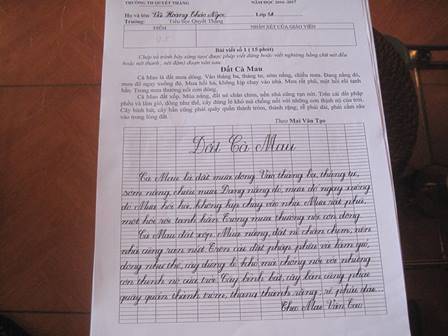 TRƯỜNG TH QUYẾT THẮNG NĂM HỌC 2016 -2017
Họ và tên Vũ Hoàng Thảo Ngọc Lớp 5A
Trường: Tiểu học Quyết Thắng
ĐIỂM NHẬN XÉT CỦA GIÁO VIÊN
Bài viết số 1 (15 phút)
Chép và trình bày sáng tạo
hoặc nét thanh, nét đậm) đoạn văn sau:
Đất Cà Mau
Cà Mau là đất mưa dông. Vào tháng ba, tháng tư, sớm nắng, chiều mưa. Đang nắng đó,
mưa đổ ngay xuống đó. Mưa hối hả, không kịp chạy vào nhà. Mưa rất phũ, một hồi rồi tạnh
hẳn. Trong mưa thường nổi cơn dông.
Cà Mau đất xốp. Mùa nắng, đất nẻ chân chim, nền nhà cũng rạn nứt. Trên cái đất phập
phều và lắm gió, dông như thế, cây đứng lẻ khó mà chống nổi với những cơn thịnh nộ của trời.
Cây bình bát, cây bần cũng phải quây quần thành chòm, thành rặng; rễ phải dài, phải cắm sâu
vào trong lòng đất.
Theo Mai Văn Tạo
Đất Cà Mau
Cà Mau là đất mưa dông. Vào tháng ba, tháng tư,
sớm nắng, chiều mưa. Đang nắng đó, mưa đổ ngay xuống
đó. Mưa hối hả, không kịp chạy vào nhà. Mưa rất phũ,
một hồi rồi tạnh hẳn. Trong mưa thường nổi cơn dông.
Cà Mau đất xốp. Mùa nắng, đất nẻ chân chim, nền
nhà cũng rạn nứt. Trên cái đất phập phều và lắm gió,
dông như thế, cây đứng lẻ khó mà chống nổi với những
cơn thịnh nộ của trời. Cây bình bát, cây bần cũng phải
quây quần thành chòm, thành rặng; rễ phải dài...
Theo Mai Văn Tạo